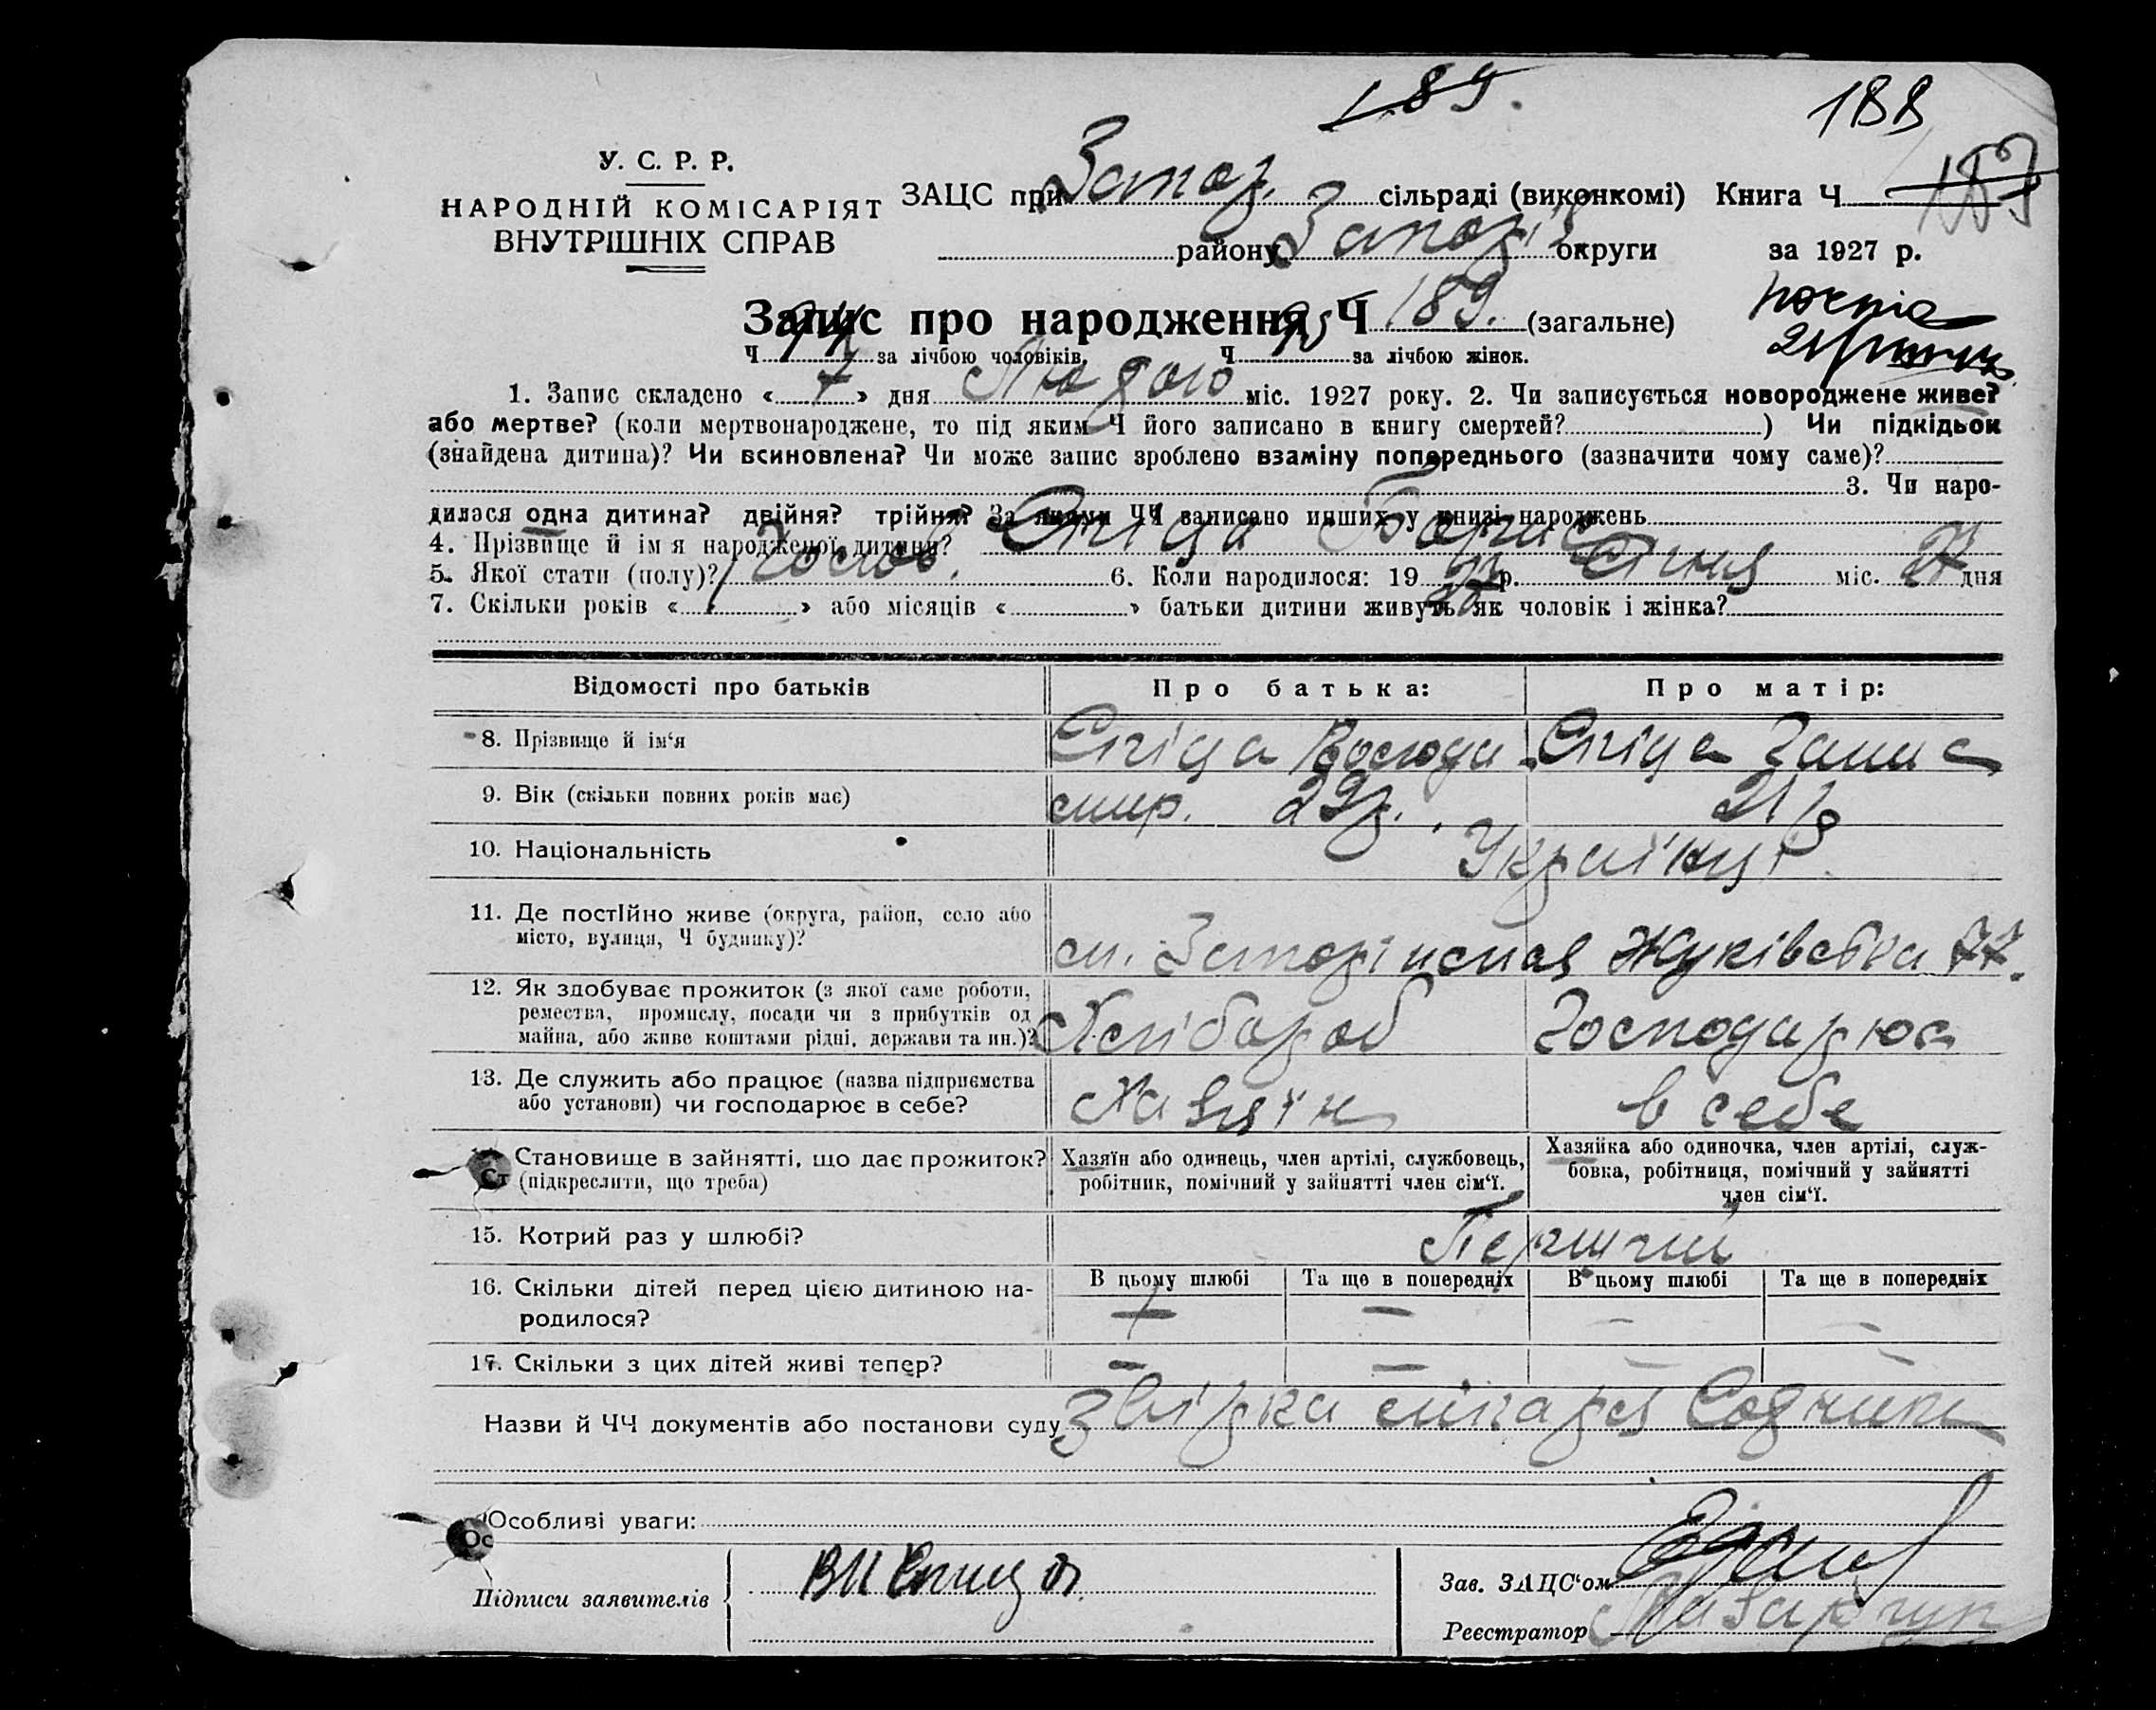 189.
188
У. С. Р. Р.
НАРОДНІЙ КОМІСАРІЯТ
ВНУТРІШНІХ СПРАВ
ЗАЦС при Запоз. сільраді (виконкомі) Книга Ч 187
району Запоріз округи за 1927 р.
Запис про народження Ч 189. (загальне)
Ч 94 за лічбою чоловіків, Ч 95 за лічбою жінок.
1. Запис складено « 7 » дня Лютого міс. 1927 року. 2. Чи записується новороджене живе?
або мертве? (коли мертвонароджене, то під яким Ч його записано в книгу смертей? ) Чи підкідьок
(знайдена дитина)? Чи всиновлена? Чи може запис зроблено взаміну попереднього (зазначити чому саме)?
3. Чи наро-
дилася одна дитина? двійня? трійня? За якими ЧЧ записано инших у книзі народжень
4. Прізвище й ім'я народженої дитини? Спіца Борис
5. Якої стати (полу)? Чолов. 6. Коли народилося: 19 27 р. Січня міс. 27 дня
7. Скільки років « » або місяців « » батьки дитини живуть як чоловік і жінка?
Відомості про батьків Про батька: Про матір:
8. Прізвище й ім'я Спіца Спіца
9. Вік (скільки повних років має) 29 р. 21 р
10. Національність Українці
11. Де постійно живе (округа, район, село або
місто, вулиця, Ч будинку)? Жуківська 77.
12. Як здобуває прожиток (з якої саме роботи,
ремества, промислу, посади чи з прибутків од
майна, або живе коштами рідні, держави та ин.)? Хлібороб Господарює
13. Де служить або працює (назва підприємства
або установи) чи господарює в себе? Хазяїн в себе
Становище в зайнятті, що дає прожиток?
(підкреслити, що треба)
Хазяїн або одинець, член артілі, службовець,
робітник, помічний у зайнятті член сім'ї.
Хазяйка або одиночка, член артілі, служ-
бовка, робітниця, помічний у зайнятті
член сім'ї.
15. Котрий раз у шлюбі? Перший
16. Скільки дітей перед цією дитиною на-
родилося?
В цьому шлюбі Та ще в попередніх В цьому шлюбі Та ще в попередніх
— — — —
17. Скільки з цих дітей живі тепер? — — — —
Назви й ЧЧ документів або постанови суду звірка лікаря
Особливі уваги:
Підписи заявителів
Зав. ЗАЦС'ом
Реєстратор